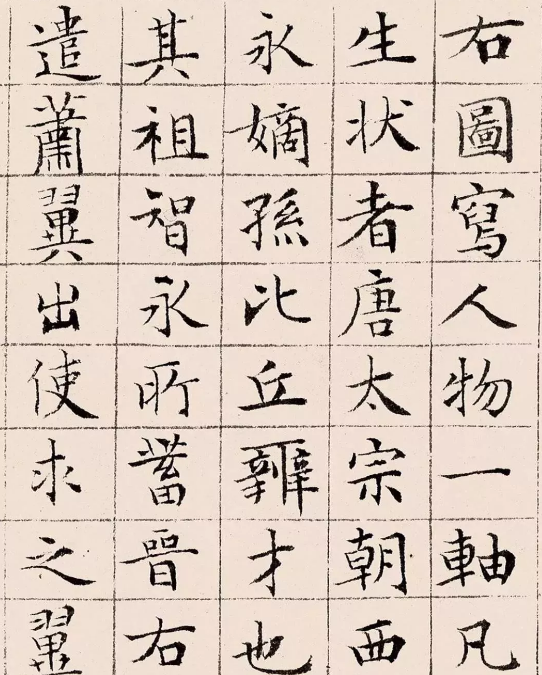 右圖寫人物一軸凡
生状者唐太宗朝西
永嫡孫比丘辯才也
其祖智永所蓄晉右
遣蕭翼出使求之翼